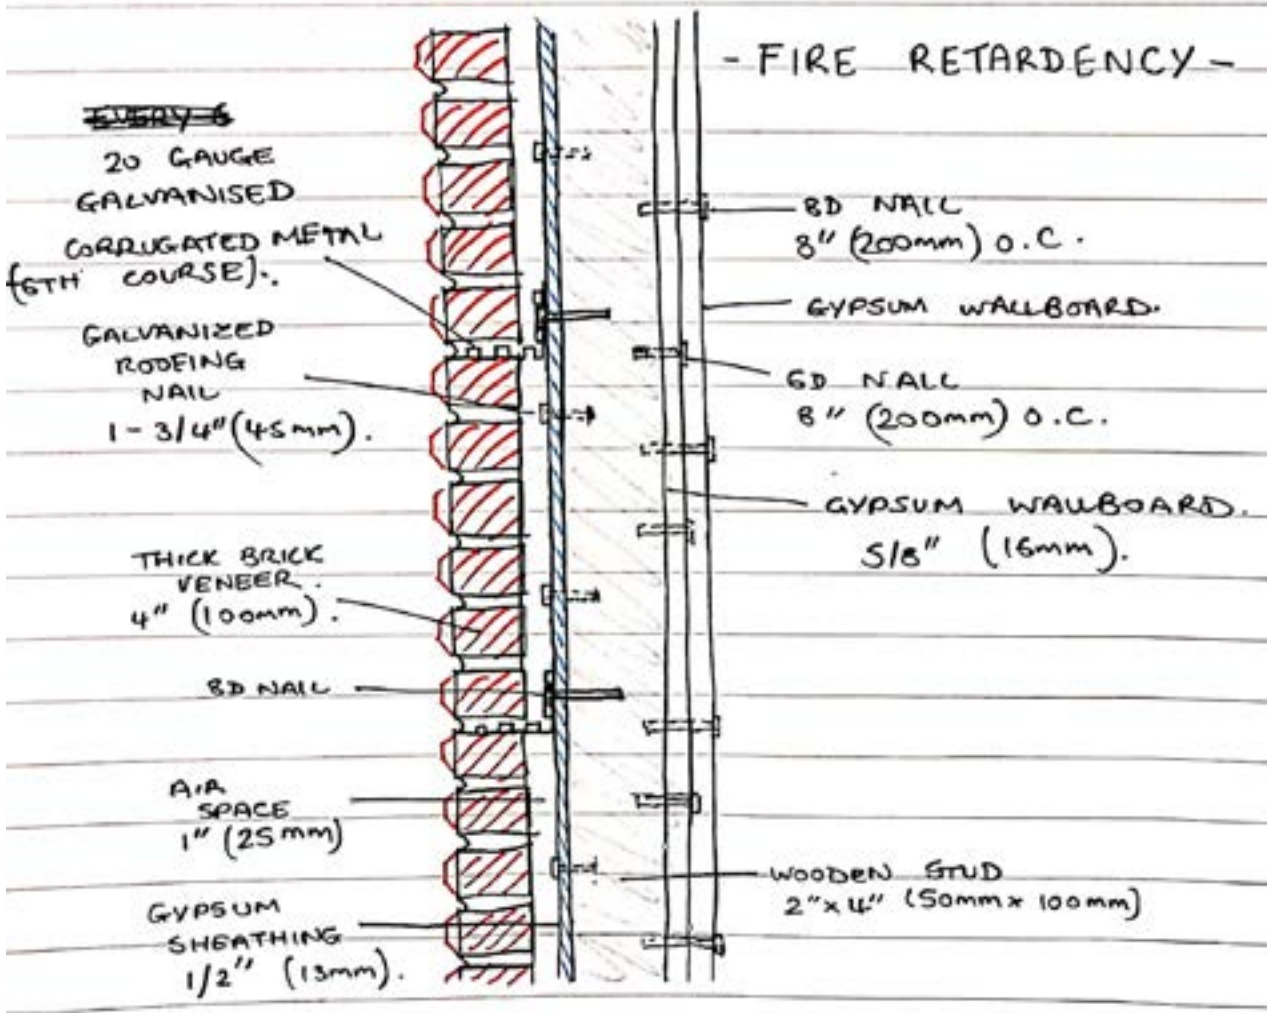 - FIRE RETARDENCY -
20 GAUGE
GALVANISED
CORRUGATED METAL
(6TH COURSE).
GALVANIZED
ROOFING
NAIL
1-3/4" (45mm).
THICK BRICK
VENEER.
4" (100mm).
8D NAIL
AIR
SPACE
1" (25mm)
GYPSUM
SHEATHING
1/2" (13mm).
8D NAIL
8" (200mm) O.C.
GYPSUM WALLBOARD.
6D NAIL
8" (200mm) O.C.
GYPSUM WALLBOARD.
5/8" (16mm).
WOODEN STUD
2"x4" (50mm x 100mm)